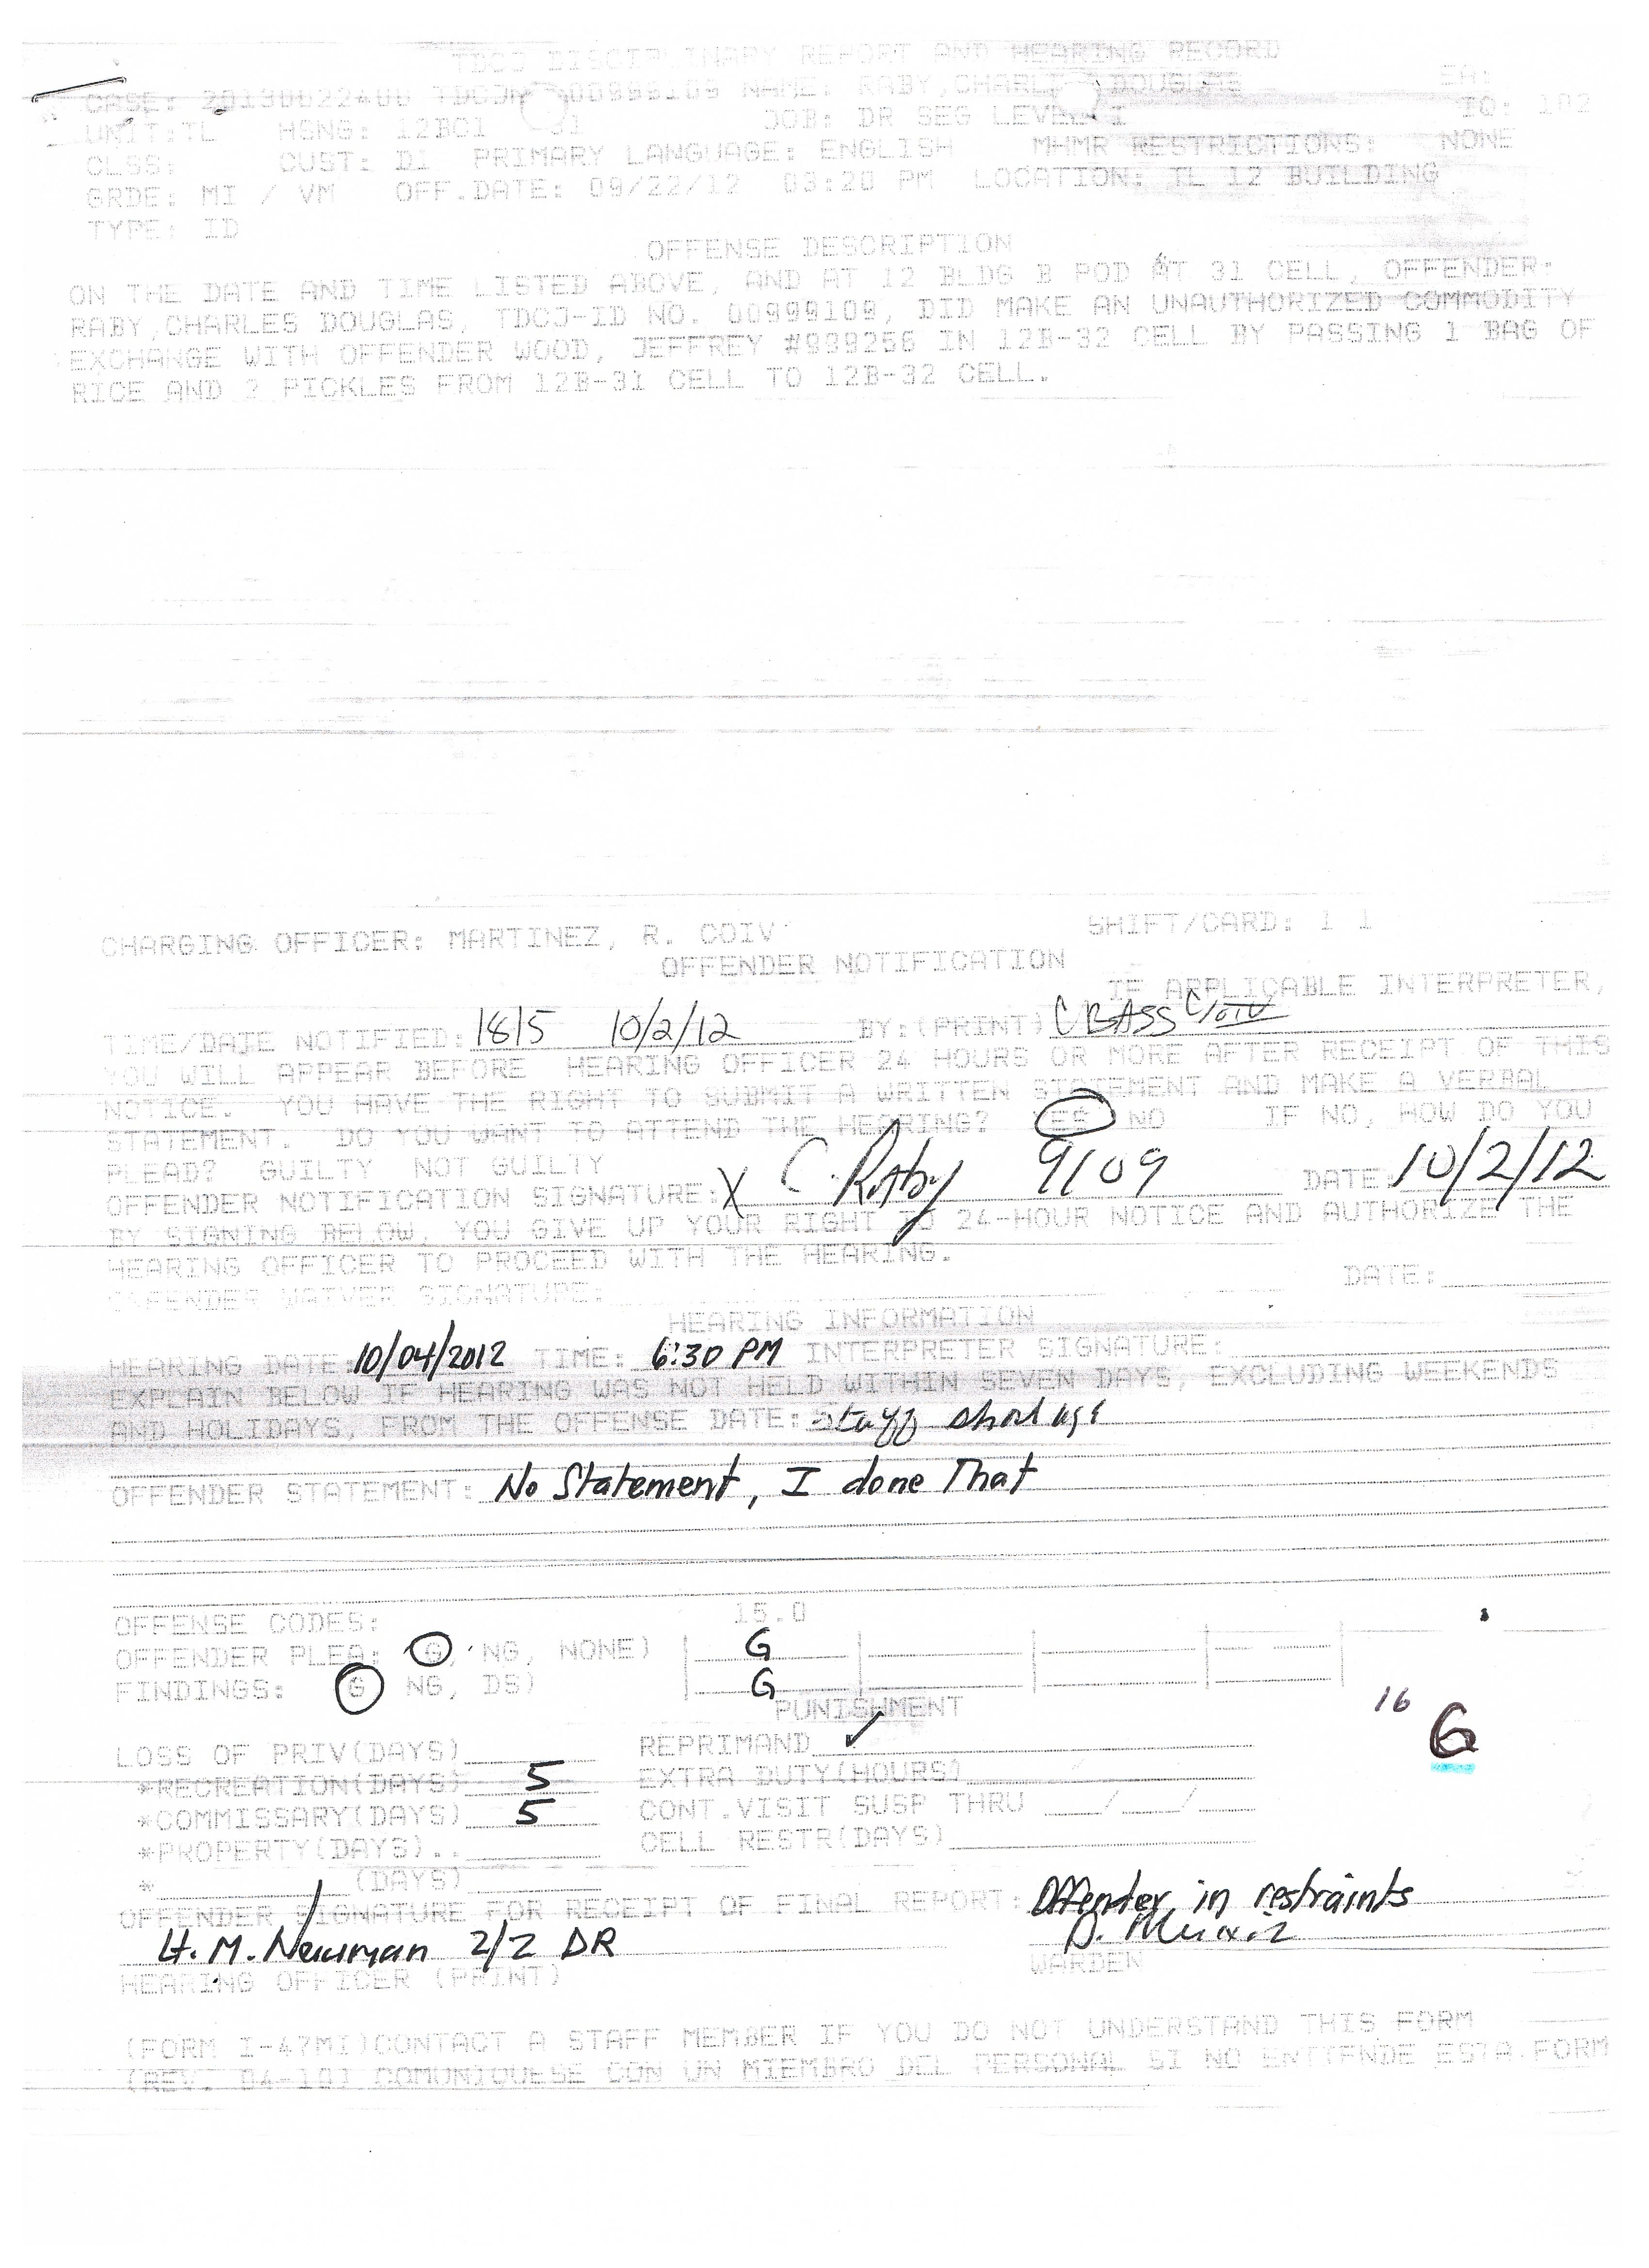 TDCJ DISCIPLINARY REPORT AND HEARING RECORD
CASE: 20130022400 TDCJN 00999109 NAME: RABY,CHARLES DOUGLAS EA:
UNIT:TL HSNG: 12BC1 31 JOB: DR SEG LEVEL I IQ: 102
CLSS: CUST: D1 PRIMARY LANGUAGE: ENGLISH MHMR RESTRICTIONS: NONE
GRDE: MI / VM OFF.DATE: 09/22/12 03:20 PM LOCATION: TL 12 BUILDING
TYPE: ID
OFFENSE DESCRIPTION
ON THE DATE AND TIME LISTED ABOVE, AND AT 12 BLDG B POD AT 31 CELL, OFFENDER:
RABY,CHARLES DOUGLAS, TDCJ-ID NO. 00999109, DID MAKE AN UNAUTHORIZED COMMODITY
EXCHANGE WITH OFFENDER WOOD, JEFFREY #999256 IN 12B-32 CELL BY PASSING 1 BAG OF
RICE AND 2 PICKLES FROM 12B-31 CELL TO 12B-32 CELL.
CHARGING OFFICER: MARTINEZ, R. COIV SHIFT/CARD: 1 1
OFFENDER NOTIFICATION
IF APPLICABLE INTERPRETER,
TIME/DATE NOTIFIED: 1815 10/2/12 BY:(PRINT) C BASS COIV
YOU WILL APPEAR BEFORE HEARING OFFICER 24 HOURS OR MORE AFTER RECEIPT OF THIS
NOTICE. YOU HAVE THE RIGHT TO SUBMIT A WRITTEN STATEMENT AND MAKE A VERBAL
STATEMENT. DO YOU WANT TO ATTEND THE HEARING? YES NO IF NO, HOW DO YOU
PLEAD? GUILTY NOT GUILTY
OFFENDER NOTIFICATION SIGNATURE: X C. Raby 9109 DATE: 10/2/12
BY SIGNING BELOW, YOU GIVE UP YOUR RIGHT TO 24-HOUR NOTICE AND AUTHORIZE THE
HEARING OFFICER TO PROCEED WITH THE HEARING.
OFFENDER WAIVER SIGNATURE: DATE:
HEARING INFORMATION
HEARING DATE: 10/04/2012 TIME: 6:30 PM INTERPRETER SIGNATURE:
EXPLAIN BELOW IF HEARING WAS NOT HELD WITHIN SEVEN DAYS, EXCLUDING WEEKENDS
AND HOLIDAYS, FROM THE OFFENSE DATE: staff shortage
OFFENDER STATEMENT: No Statement, I done That
OFFENSE CODES: 15.0
OFFENDER PLEA: G, NG, NONE) G
FINDINGS: G NG, DS) G
PUNISHMENT
16 G
LOSS OF PRIV(DAYS) REPRIMAND ✓
*RECREATION(DAYS) 5 EXTRA DUTY(HOURS)
*COMMISSARY(DAYS) 5 CONT.VISIT SUSP THRU / /
*PROPERTY(DAYS).. CELL RESTR(DAYS)
* (DAYS)
OFFENDER SIGNATURE FOR RECEIPT OF FINAL REPORT: Offender in restraints
Lt. M. Newman 2/2 DR
HEARING OFFICER (PRINT) WARDEN
(FORM I-47MI)CONTACT A STAFF MEMBER IF YOU DO NOT UNDERSTAND THIS FORM
(REV. 04-10) COMUNIQUESE CON UN MIEMBRO DEL PERSONAL SI NO ENTIENDE ESTA FORM